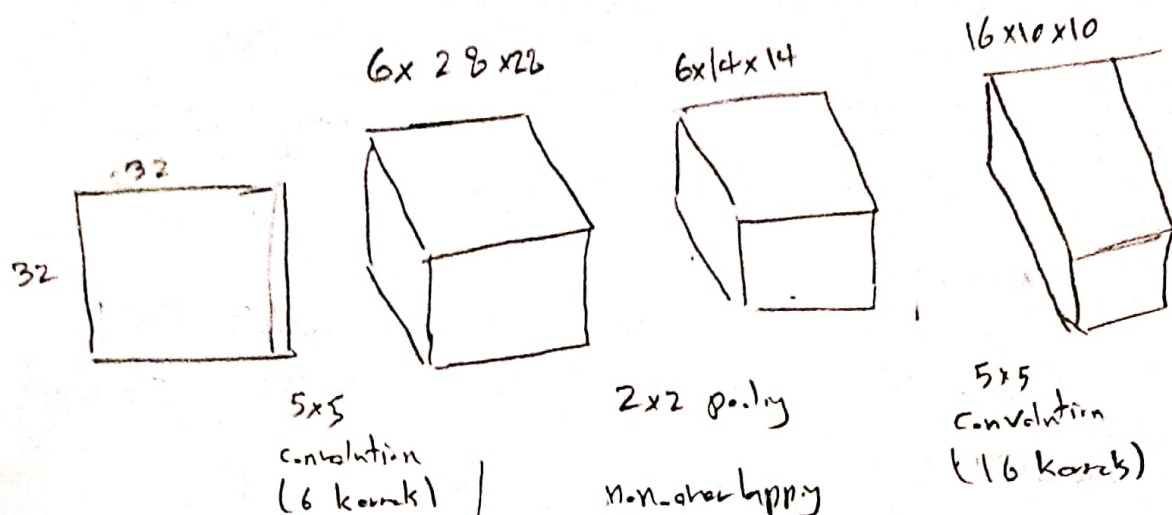 6x 28 x28
6x14x14
16x10x10
32
32
5x5
convolution
(6 kernels)
2x2 pooling
non-overlapping
5x5
convolution
(16 kernels)